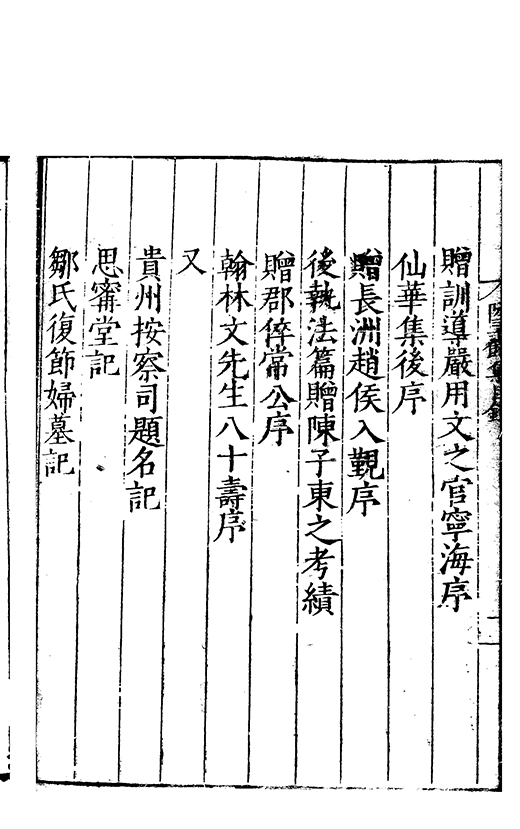 贈訓導嚴用文之官寧海序
仙華集後序
贈長洲趙侯入覲序
後執法篇贈陳子東之考績
贈郡倅常公序
翰林文先生八十壽序
又
貴州按察司題名記
思甯堂記
鄒氏復節婦墓記